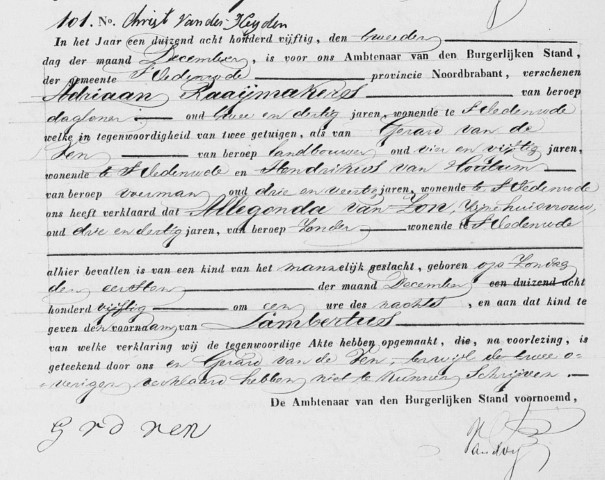 101. No. Christ Van der Heyden
In het Jaar een duizend acht honderd vijftig, den tweeden
dag der maand December, is voor ons Ambtenaar van den Burgerlijken Stand,
der gemeente St Oedenrode provincie Noordbrabant, verschenen
Adriaan Raaijmakers van beroep
dagloner oud twee en dertig jaren, wonende te St Oedenrode
welke in tegenwoordigheid van twee getuigen, als van Gerard van de
Ven van beroep landbouwer oud vier en vijftig jaren,
wonende te St Oedenrode en Hendrikus van Houtum
van beroep voerman oud drie en veertig jaren, wonende te St Oedenrode
ons heeft verklaard dat Allegonda van Zon, zijne huisvrouw,
oud drie en dertig jaren, van beroep zonder wonende te St Oedenrode
alhier bevallen is van een kind van het mannelijk geslacht, geboren op Zondag
den eersten der maand December een duizend acht
honderd vijftig om een ure des nachts, en aan dat kind te
geven den voornaam van Lambertus
van welke verklaring wij de tegenwoordige Akte hebben opgemaakt, die, na voorlezing, is
geteekend door ons en Gerard van de Ven, terwijl de twee o-
verigen verklaard hebben niet te kunnen schrijven.
De Ambtenaar van den Burgerlijken Stand voornoemd,
G v d ven